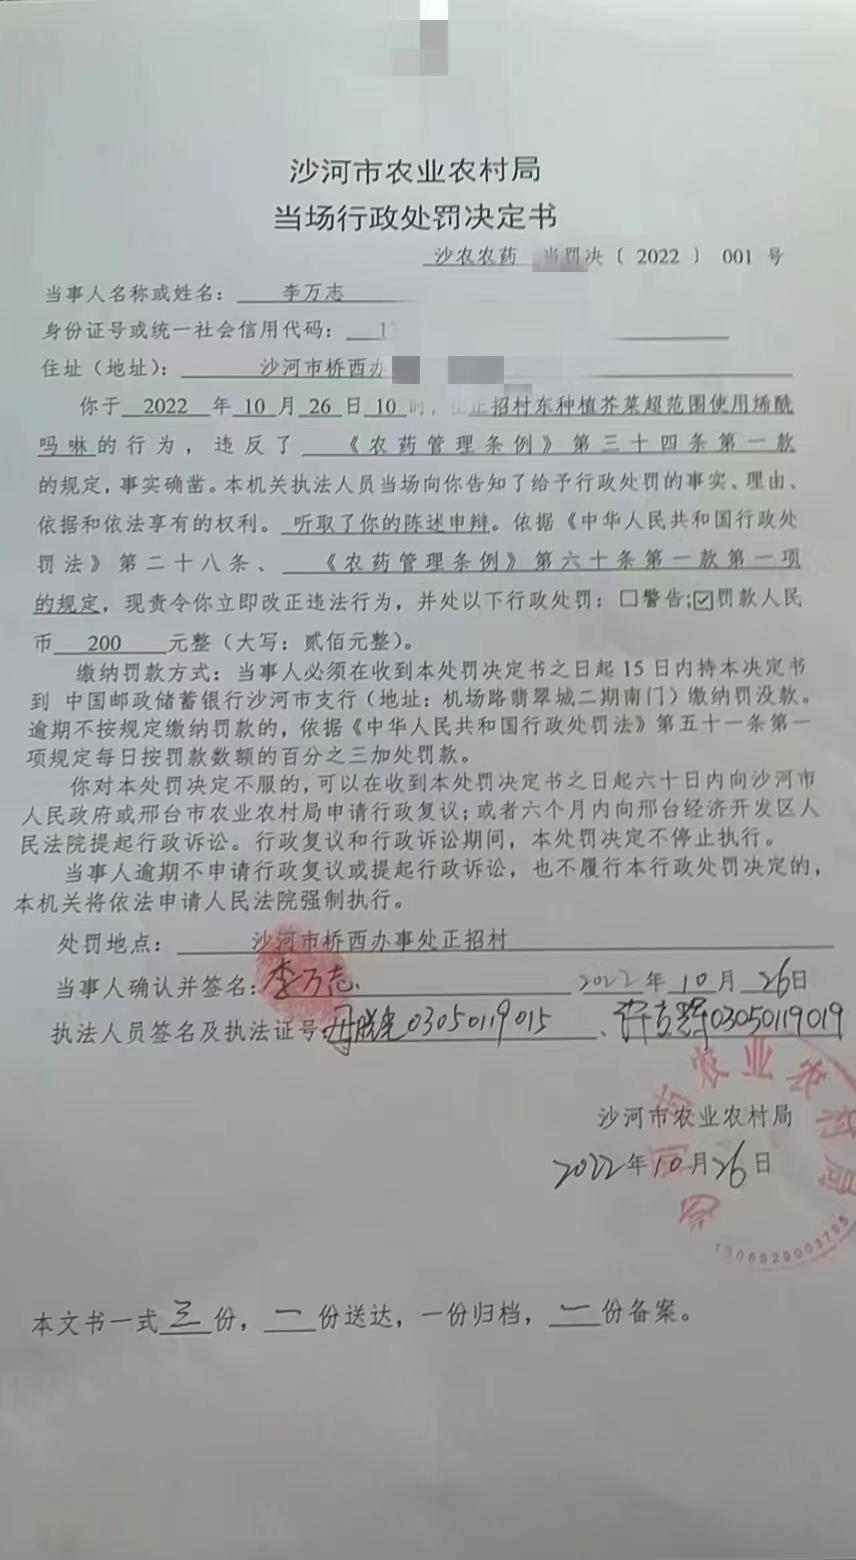 沙河市农业农村局
当场行政处罚决定书
沙农农药 当罚决〔2022〕 001 号
当事人名称或姓名： 李万志
身份证号或统一社会信用代码： 1
住址（地址）： 沙河市桥西办
你于 2022 年 10 月 26 日 10 时，在正招村东种植芥菜超范围使用烯酰
吗啉的行为，违反了 《农药管理条例》第三十四条第一款
的规定，事实确凿。本机关执法人员当场向你告知了给予行政处罚的事实、理由、
依据和依法享有的权利。听取了你的陈述申辩。依据《中华人民共和国行政处
罚法》第二十八条、 《农药管理条例》第六十条第一款第一项
的规定，现责令你立即改正违法行为，并处以下行政处罚：☐警告;☑罚款人民
币 200 元整（大写：贰佰元整）。
缴纳罚款方式：当事人必须在收到本处罚决定书之日起 15 日内持本决定书
到 中国邮政储蓄银行沙河市支行（地址：机场路翡翠城二期南门）缴纳罚没款。
逾期不按规定缴纳罚款的，依据《中华人民共和国行政处罚法》第五十一条第一
项规定每日按罚款数额的百分之三加处罚款。
你对本处罚决定不服的，可以在收到本处罚决定书之日起六十日内向沙河市
人民政府或邢台市农业农村局申请行政复议；或者六个月内向邢台经济开发区人
民法院提起行政诉讼。行政复议和行政诉讼期间，本处罚决定不停止执行。
当事人逾期不申请行政复议或提起行政诉讼，也不履行本行政处罚决定的，
本机关将依法申请人民法院强制执行。
处罚地点： 沙河市桥西办事处正招村
当事人确认并签名：李万志 2022 年 10 月 26 日
执法人员签名及执法证号： 03050119015 、 03050119019
沙河市农业农村局
2022 年 10 月 26 日
本文书一式 三 份， 一 份送达，一份归档， 一 份备案。